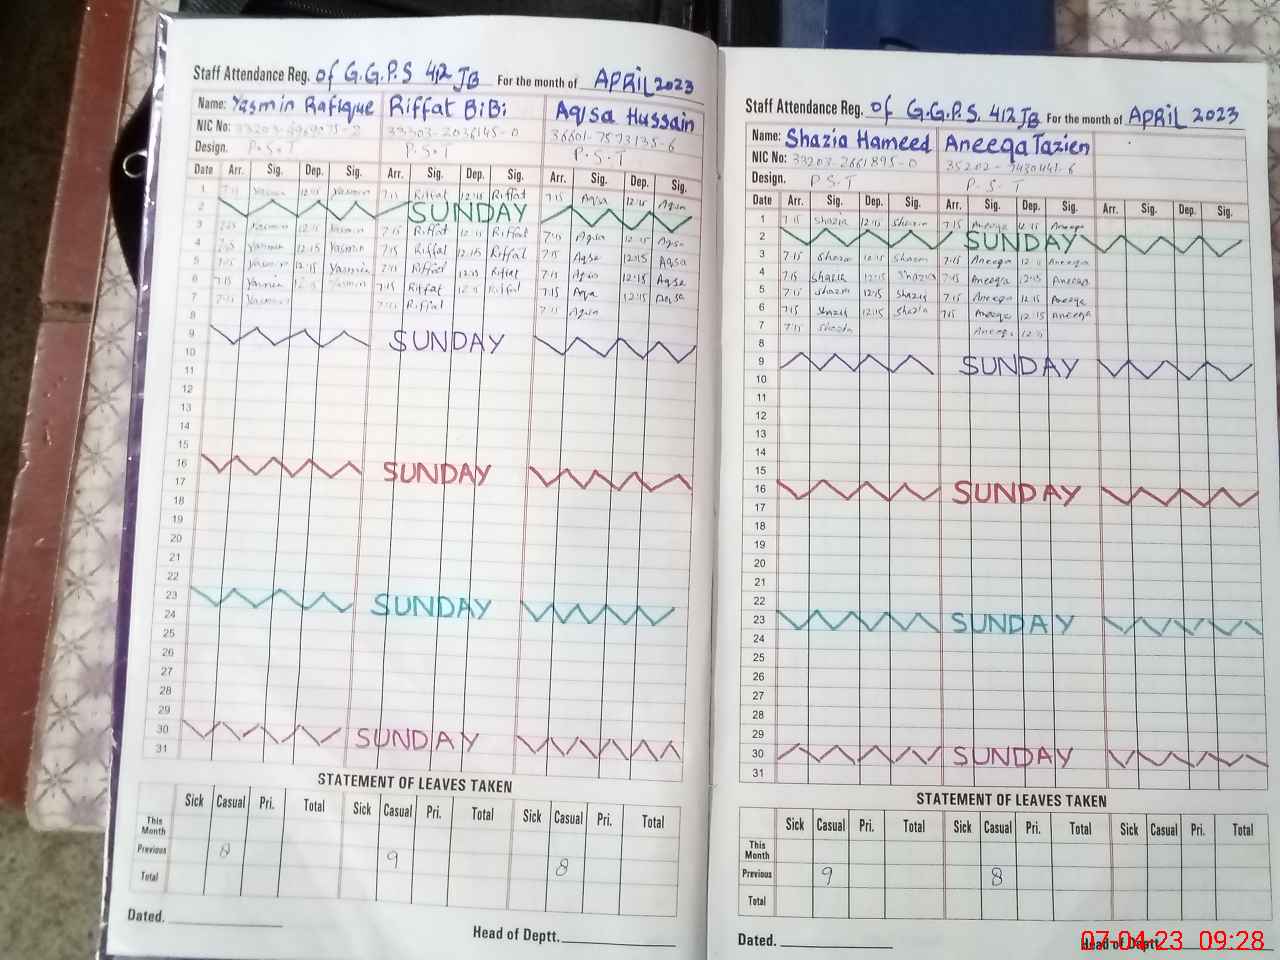 Staff Attendance Reg. of G.G.P.S 412 JB For the month of APRIL 2023
Name: Yasmin Rafique Riffat BiBi Aqsa Hussain
NIC No: 33303-2036145-0 36601-7573135-6
Design. P.S.T P.S.T P.S.T
Date Arr. Sig. Dep. Sig. Arr. Sig. Dep. Sig. Arr. Sig. Dep. Sig.
1 7:15 Yasmin 12:15 Yasmin 7:15 Riffat 12:15 Riffat 7:15 Aqsa 12:15 Aqsa
2 SUNDAY
3 Yasmin 12:15 Yasmin 7:15 Riffat 12:15 Riffat 7:15 Aqsa 12:15 Aqsa
4 Yasmin 12:15 Yasmin 7:15 Riffat 12:15 Riffat 7:15 Aqsa 12:15 Aqsa
5 7:15 Yasmin 12:15 Yasmin 7:15 Riffat 12:15 Riffat 7:15 Aqsa 12:15 Aqsa
6 7:15 Yasmin 12:15 Yasmin 7:15 Riffat 12:15 Riffat 7:15 Aqsa 12:15 Aqsa
7 7:15 Yasmin 7:15 Riffat 7:15 Aqsa
8
9 SUNDAY
10
11
12
13
14
15
16 SUNDAY
17
18
19
20
21
22
23 SUNDAY
24
25
26
27
28
29
30 SUNDAY
31
STATEMENT OF LEAVES TAKEN
Sick Casual Pri. Total Sick Casual Pri. Total Sick Casual Pri. Total
This Month
Previous 8 9 8
Total
Dated.
Head of Deptt.
Staff Attendance Reg. of G.G.P.S. 412 JB For the month of APRIL 2023
Name: Shazia Hameed Aneeqa Tazien
NIC No: 33203-2661895-0
Design. P.S.T P.S.T
Date Arr. Sig. Dep. Sig. Arr. Sig. Dep. Sig. Arr. Sig. Dep. Sig.
1 7:15 Shazia 12:15 Shazia 7:15 Aneeqa 12:15 Aneeqa
2 SUNDAY
3 7:15 Shazia 12:15 Shazia 7:15 Aneeqa 12:15 Aneeqa
4 7:15 Shazia 12:15 Shazia 7:15 Aneeqa 12:15 Aneeqa
5 7:15 Shazia 12:15 Shazia 7:15 Aneeqa 12:15 Aneeqa
6 7:15 Shazia 12:15 Shazia 7:15 Aneeqa 12:15 Aneeqa
7 7:15 Shazia Aneeqa 12:15
8
9 SUNDAY
10
11
12
13
14
15
16 SUNDAY
17
18
19
20
21
22
23 SUNDAY
24
25
26
27
28
29
30 SUNDAY
31
STATEMENT OF LEAVES TAKEN
Sick Casual Pri. Total Sick Casual Pri. Total Sick Casual Pri. Total
This Month
Previous 9 8
Total
Dated.
Head of Deptt.
07.04.23 09:28